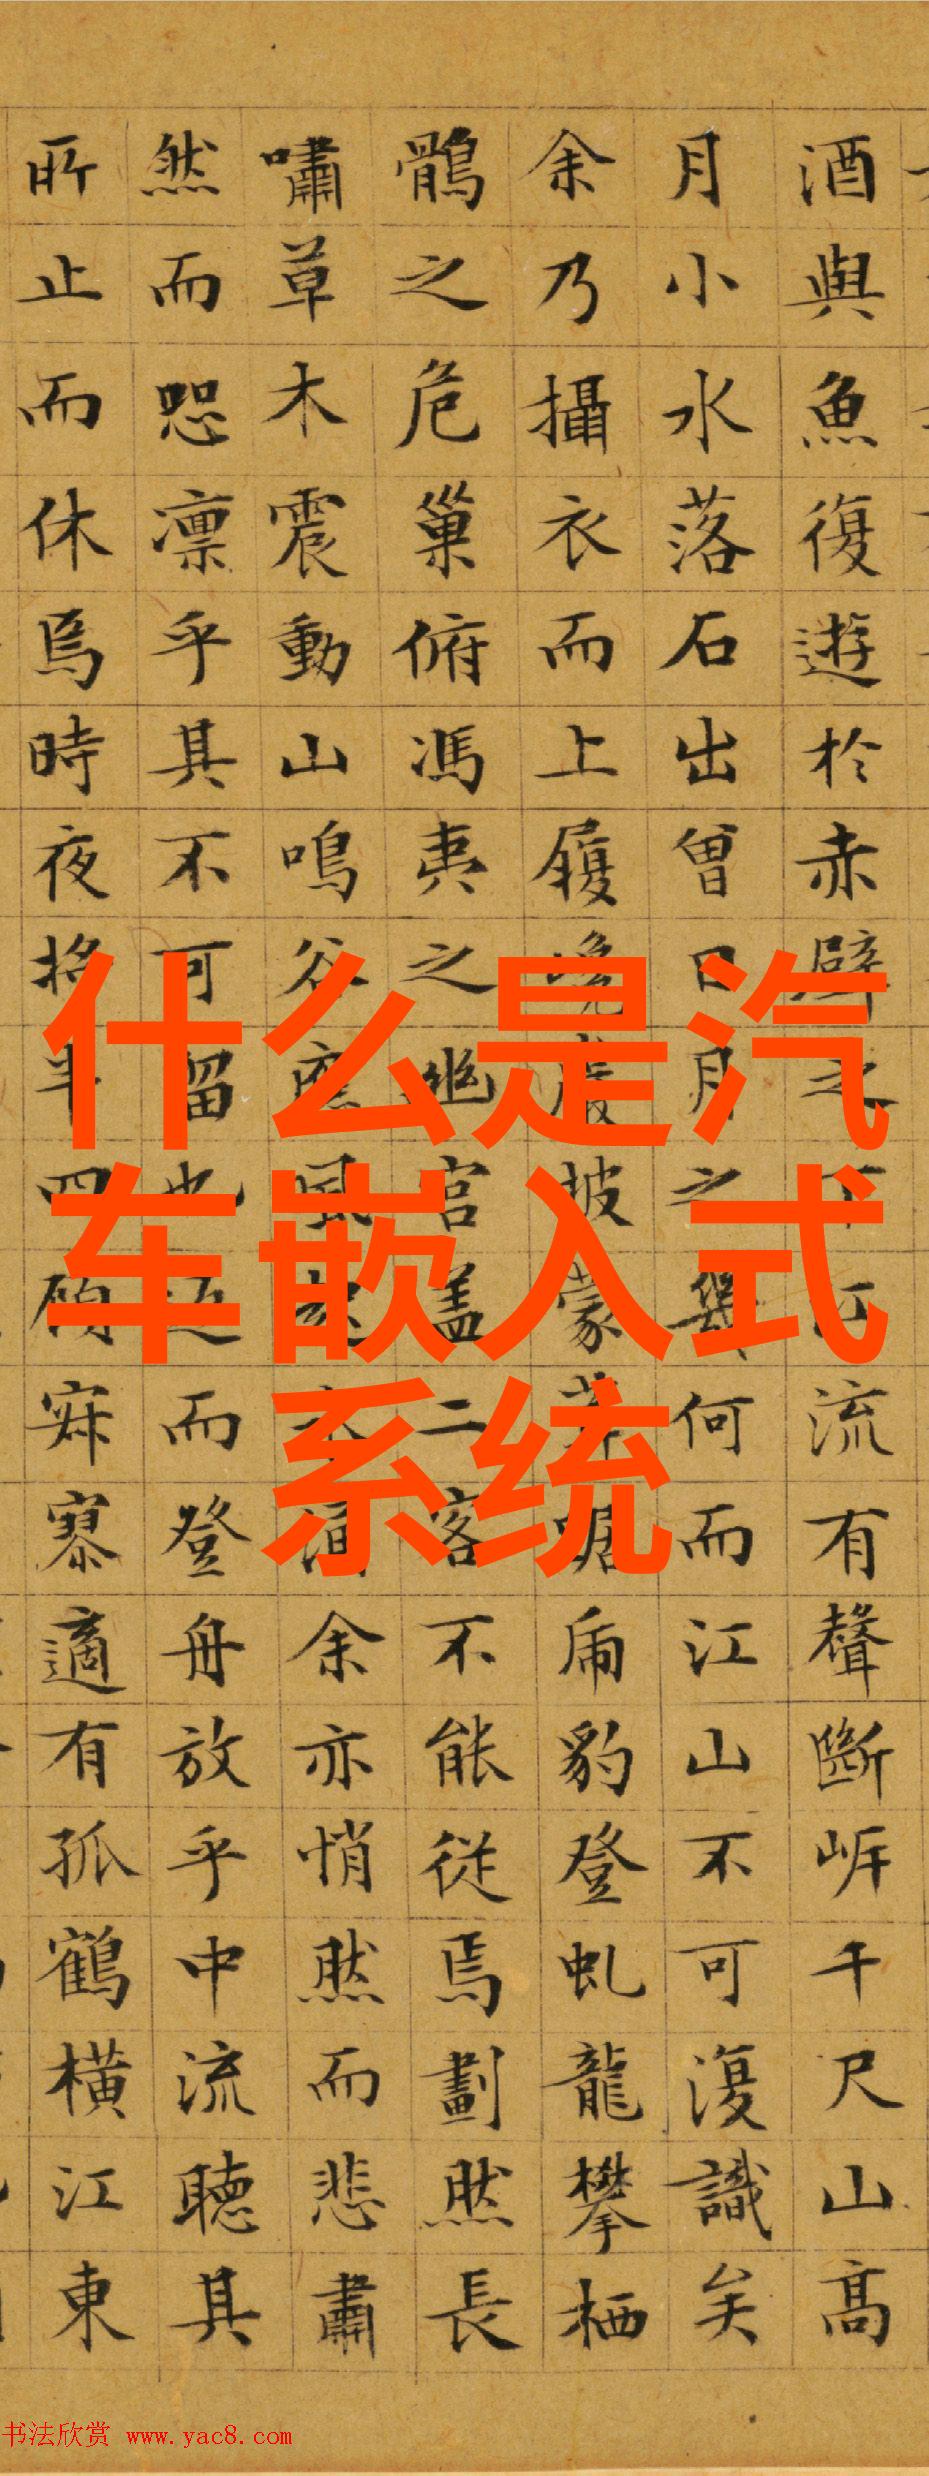 酒與魚復遊於赤壁之下江流有聲斷岸千尺山高
月小水落石出曾日月之幾何而江山不可復識矣
余乃攝衣而上履巉巖披蒙茸踞虎豹登虬龍攀栖
鶻之危巢俯馮夷之幽宮盖二客不能從焉劃然長
嘯草木震動山鳴谷應風起水涌余亦悄然而悲肅
然而恐凛乎其不可留也返而登舟放乎中流聽其
所止而休焉時夜將半四顧寂寥適有孤鶴橫江東
什么是汽
车嵌入式
系统
书法欣赏 www.yac8.com